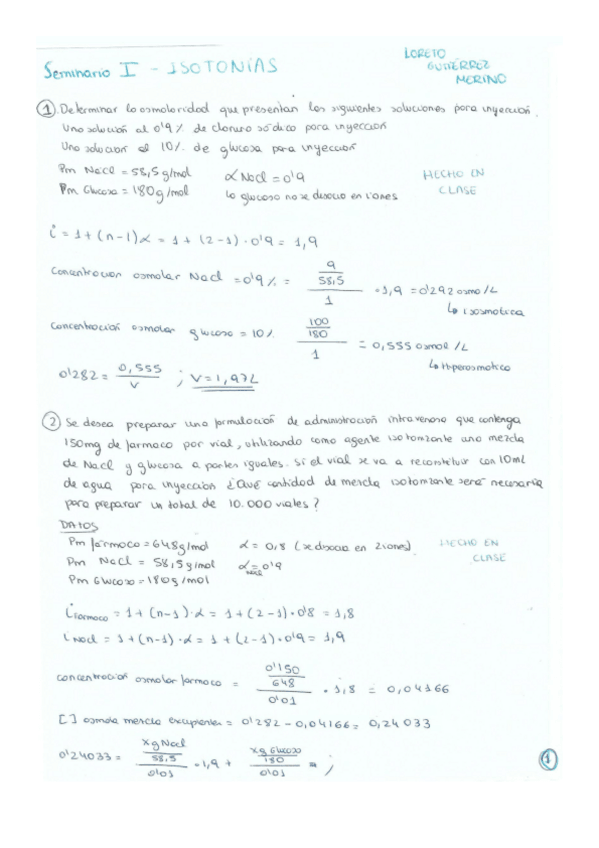 Seminario I - ISOTONÍAS
LORETO
GUTIÉRREZ
MERINO
① Determinar la osmolaridad que presentan las siguientes soluciones para inyección.
Una solución al 0'9% de cloruro sódico para inyección
Una solución al 10% de glucosa para inyección
Pm NaCl = 58,5 g/mol α NaCl = 0'9
Pm Glucosa = 180 g/mol la glucosa no se disocia en iones
HECHO EN
CLASE
i = 1 + (n-1)α = 1 + (2-1) · 0'9 = 1,9
Concentración osmolar NaCl = 0'9% = 9/58,5 / 1 · 1,9 = 0'292 osmo/L
↳ isosmótica
Concentración osmolar glucosa = 10% 100/180 / 1 = 0,555 osmol/L
↳ Hiperosmótica
0'282 = 0,555/V ; V = 1,97L
② Se desea preparar una formulación de administración intravenosa que contenga
150mg de fármaco por vial, utilizando como agente isotonizante una mezcla
de NaCl y glucosa a partes iguales. Si el vial se va a reconstituir con 10ml
de agua para inyección ¿Qué cantidad de mezcla isotonizante será necesaria
para preparar un total de 10.000 viales?
DATOS
Pm fármaco = 648g/mol α = 0,8 (se disocia en 2 iones)
Pm NaCl = 58,5g/mol α NaCl = 0'9
Pm Glucosa = 180g/mol
HECHO EN
CLASE
i fármaco = 1 + (n-1) · α = 1 + (2-1) · 0'8 = 1,8
i NaCl = 1 + (n-1) · α = 1 + (2-1) · 0'9 = 1,9
concentración osmolar fármaco = 0'150/648 / 0'01 · 1,8 = 0,04166
[ ] osmola mezcla excipientes = 0'282 - 0,04166 = 0,24033
0'24033 = xg NaCl/58,5 / 0'01 · 1,9 + xg Glucosa/180 / 0'01 = ;
①